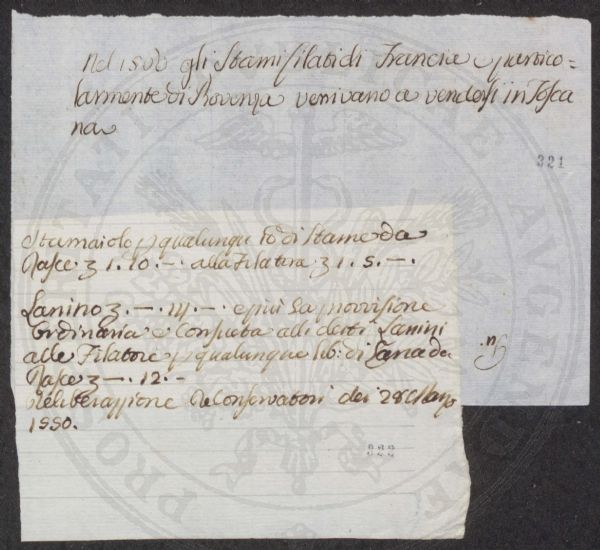 nel 1500 gli Stami filati di Francia e partico=
larmente di Provenza venivano a vendersi in Tosca
na
321
Stamaiolo p qualunque lb di Stame da
Rasce 3 1. 10. — alla Filatora 3 1. 5. —.
Lanino 3. —. 14. — e più la provvisione
Ordinaria e Consueta alli detti Lanini
alle Filatore p qualunque lib. di Lana da
Rasce 3 —. 12. —
Deliberazione de Conservatori dei 28 Marzo
1550.
322